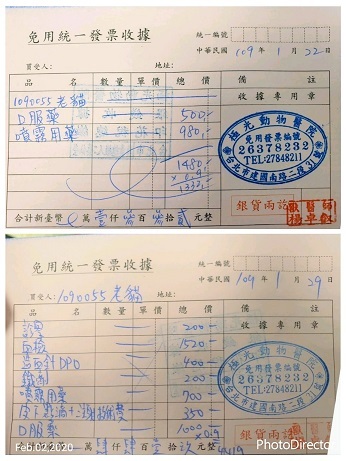 免用統一發票收據
統一編號
中華民國 109 年 1 月 22 日
買受人: 地址:
品名 數量 單價 總價 備註
1090055 老貓
收據專用章
口服藥 500-
噴霧用藥 980-
極光動物醫院
免用發票編號
26378232
TEL:27848211
台北市建國南路二段31號
1480-
x 0.9
1332.-
銀貨兩訖
獸醫師
楊卓
合計新臺幣 萬 壹 仟 百 拾 貳 元整
免用統一發票收據
統一編號
中華民國 109 年 1 月 29 日
買受人: 1090055 老貓 地址:
品名 數量 單價 總價 備註
收據專用章
200-
血檢 1520-
DPO 400-
200-
噴霧用藥 700-
皮下點滴 350
口服藥 1000
x 0.9
極光動物醫院
免用發票編號
26378232
TEL:27848211
台北市建國南路二段31號
銀貨兩訖
合計新臺幣 萬 仟 百 拾 元整
Feb.02,2020
PhotoDirecto